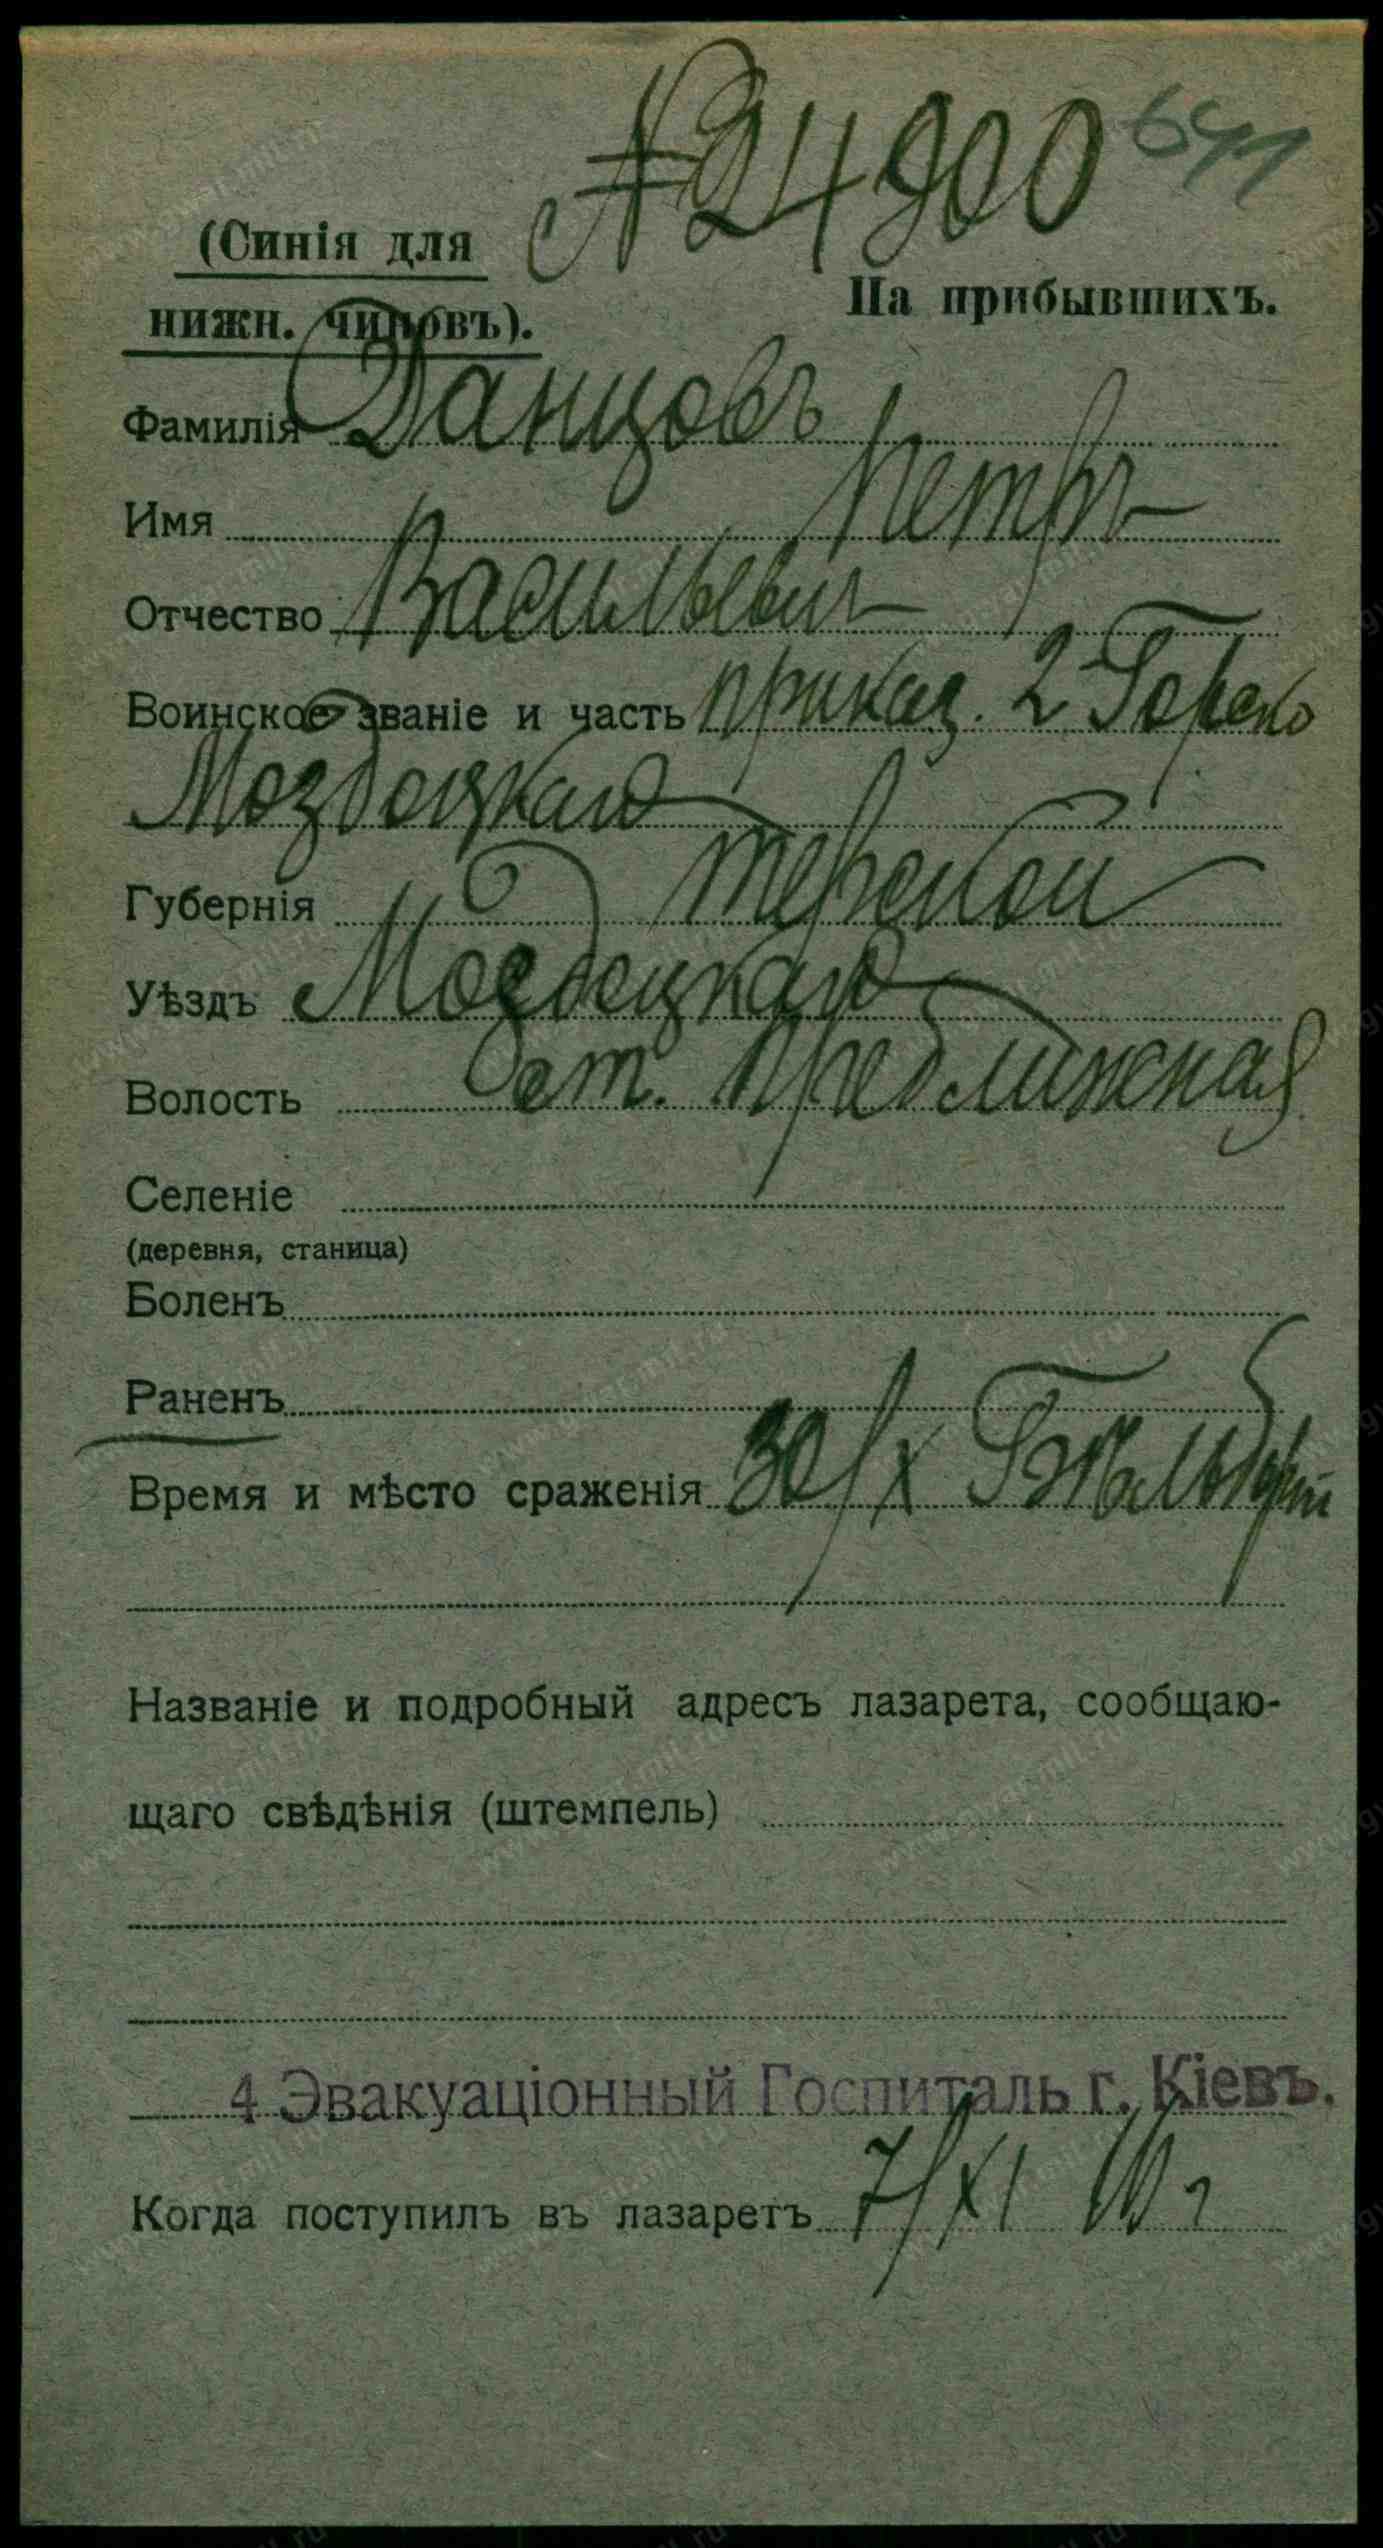 № 24900 641
(Синія для
На прибывшихъ.
нижн. чиновъ).
Фамилія Данцовъ
Имя Петръ
Отчество Васильевич
Воинское званіе и часть приказ. 2 Горско
Моздоцкаго
Губернія Терской
Уѣздъ Моздоцкаго
Волость ст. Прохладная
Селеніе
(деревня, станица)
Боленъ
Раненъ
Время и мѣсто сраженія 30/X
Названіе и подробный адресъ лазарета, сообщаю-
щаго свѣдѣнія (штемпель)
4 Эвакуаціонный Госпиталь г. Кіевъ.
Когда поступилъ въ лазаретъ 7/XI 16 г